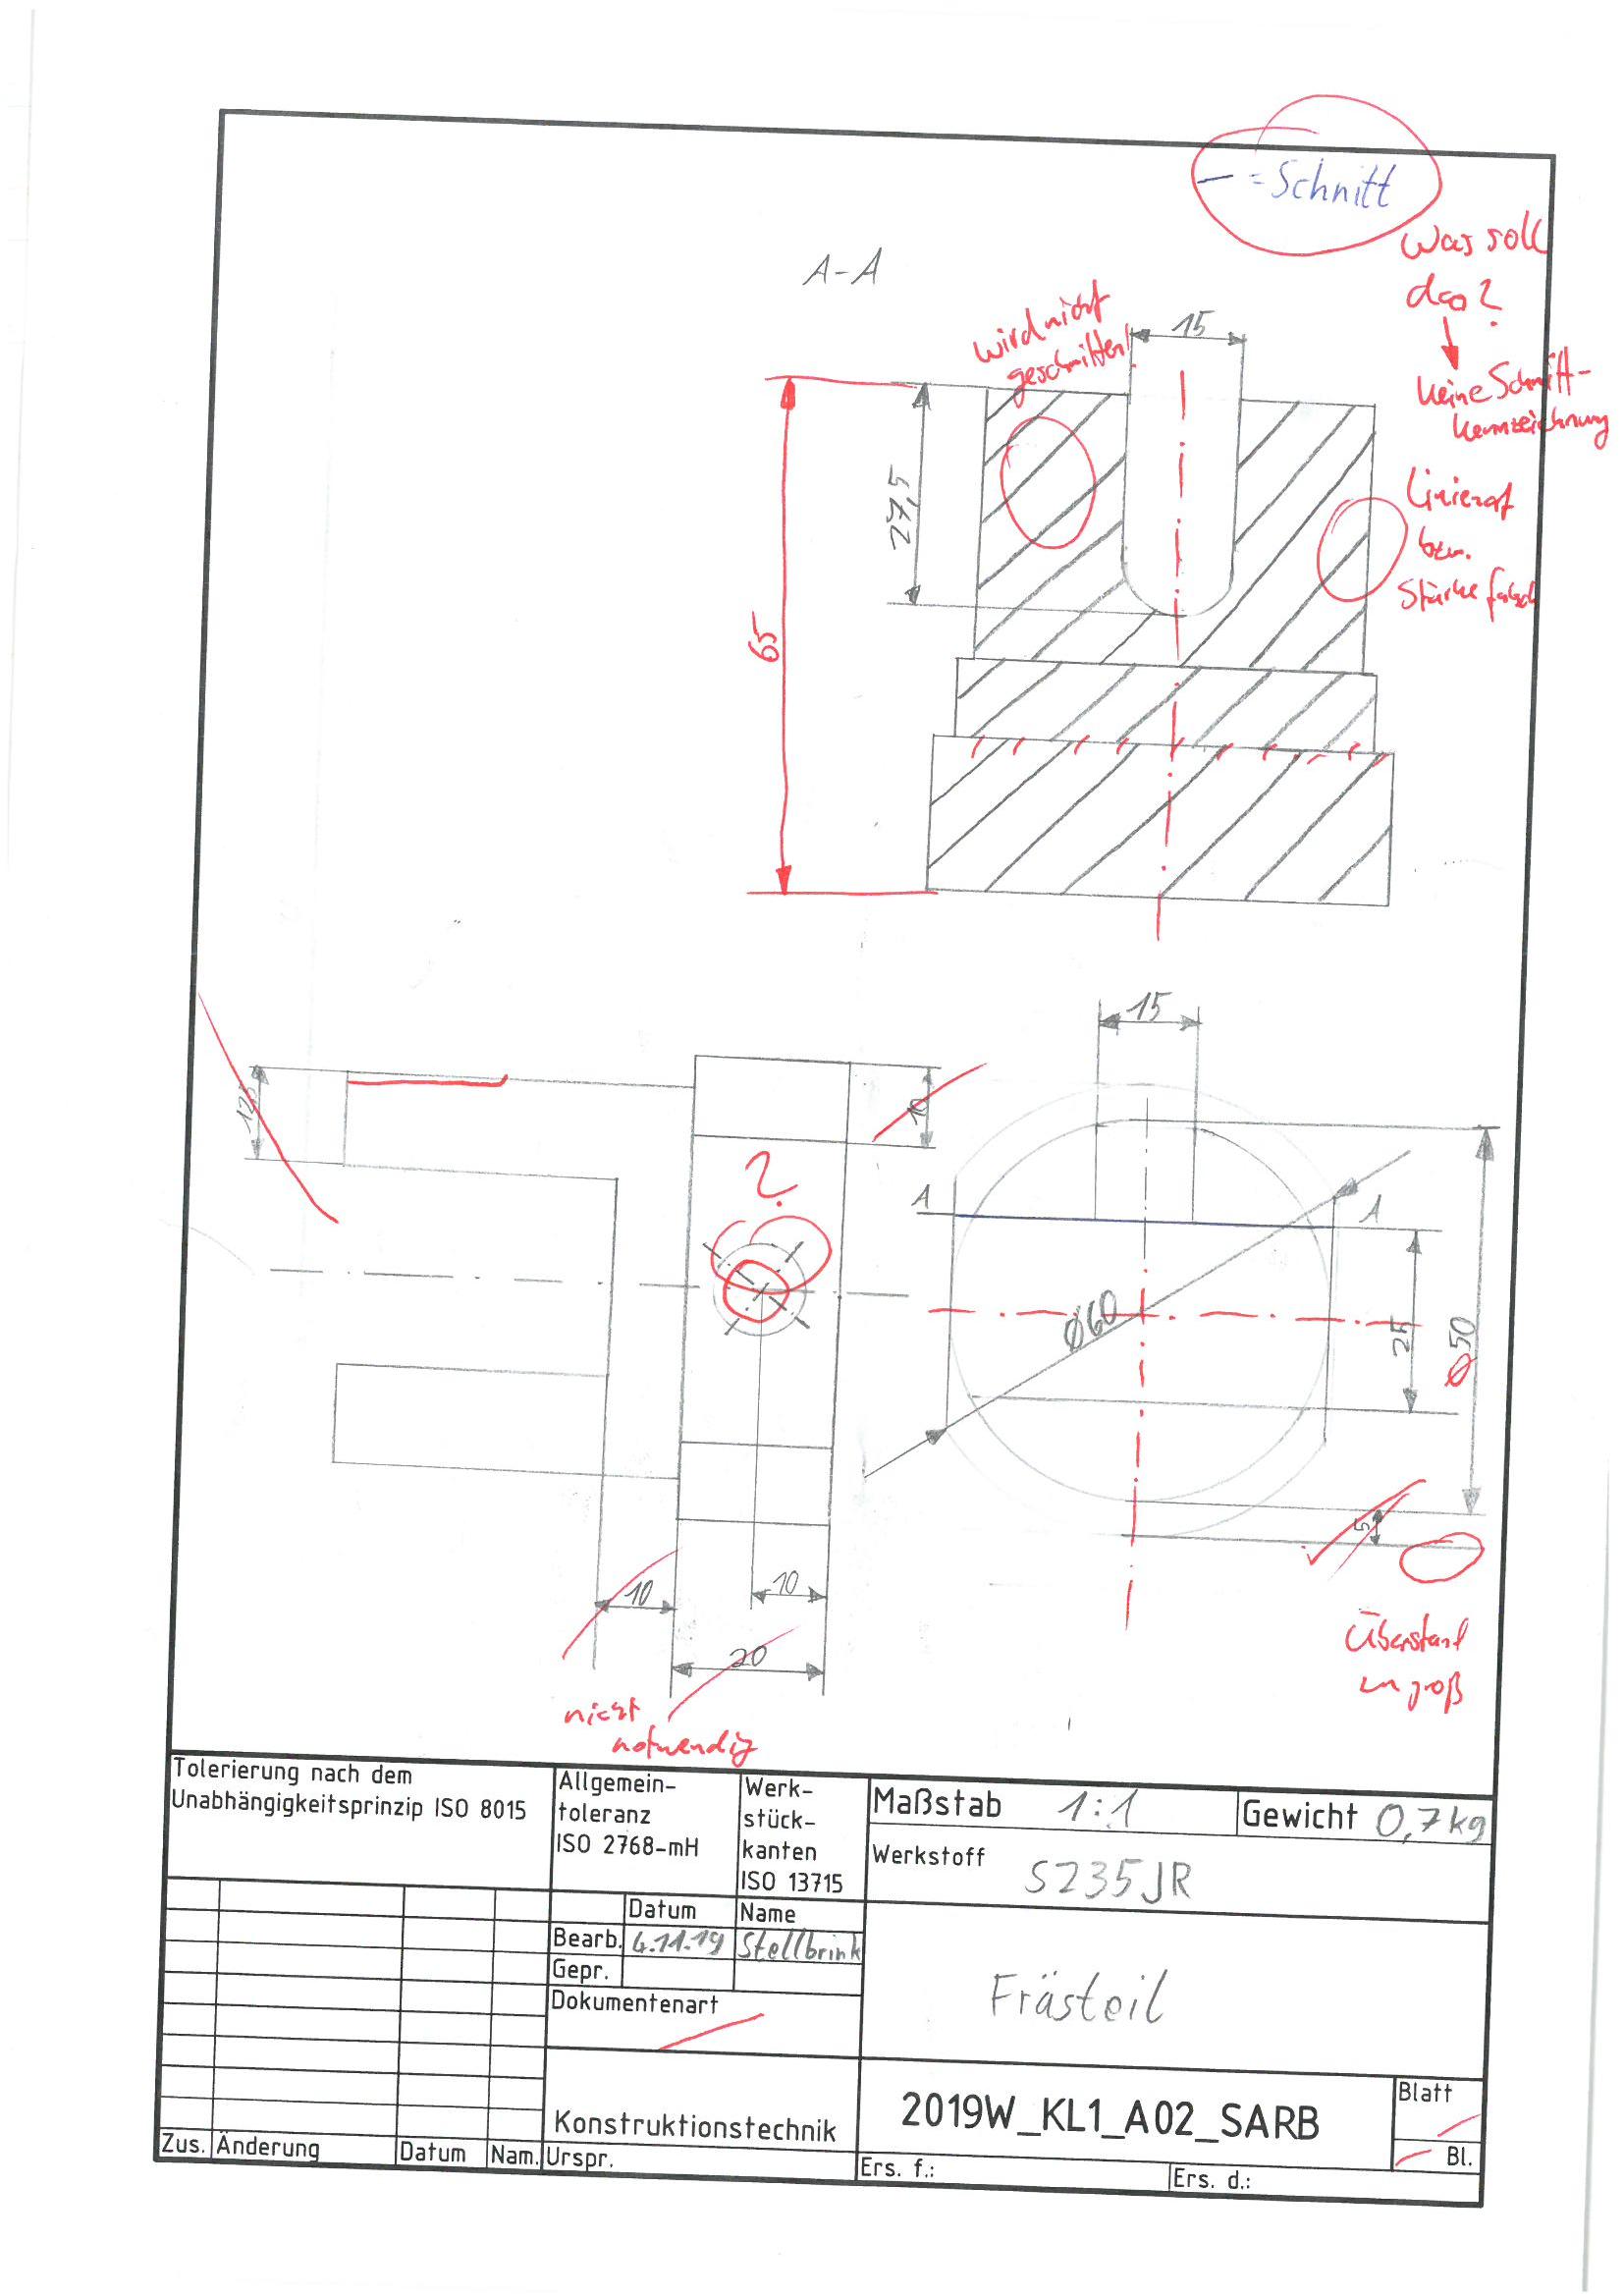 - = Schnitt
Was soll
das?
keine Schnitt-
kennzeichnung
A-A
wird nicht
geschnitten!
15
27,5
65
Linienart
bzw.
Stärke falsch
15
12,5
10
?
A
A
Ø60
25
Ø50
5
10
10
20
nicht
notwendig
Überstand
zu groß
Tolerierung nach dem
Unabhängigkeitsprinzip ISO 8015
Allgemein-
toleranz
ISO 2768-mH
Werk-
stück-
kanten
ISO 13715
Maßstab 1:1
Gewicht 0,7kg
Werkstoff S235JR
Datum Name
Bearb. 4.11.19 Stellbrink
Gepr.
Dokumentenart
Frästeil
Konstruktionstechnik
2019W_KL1_A02_SARB
Blatt
Bl.
Zus. Änderung Datum Nam. Urspr.
Ers. f.: Ers. d.: